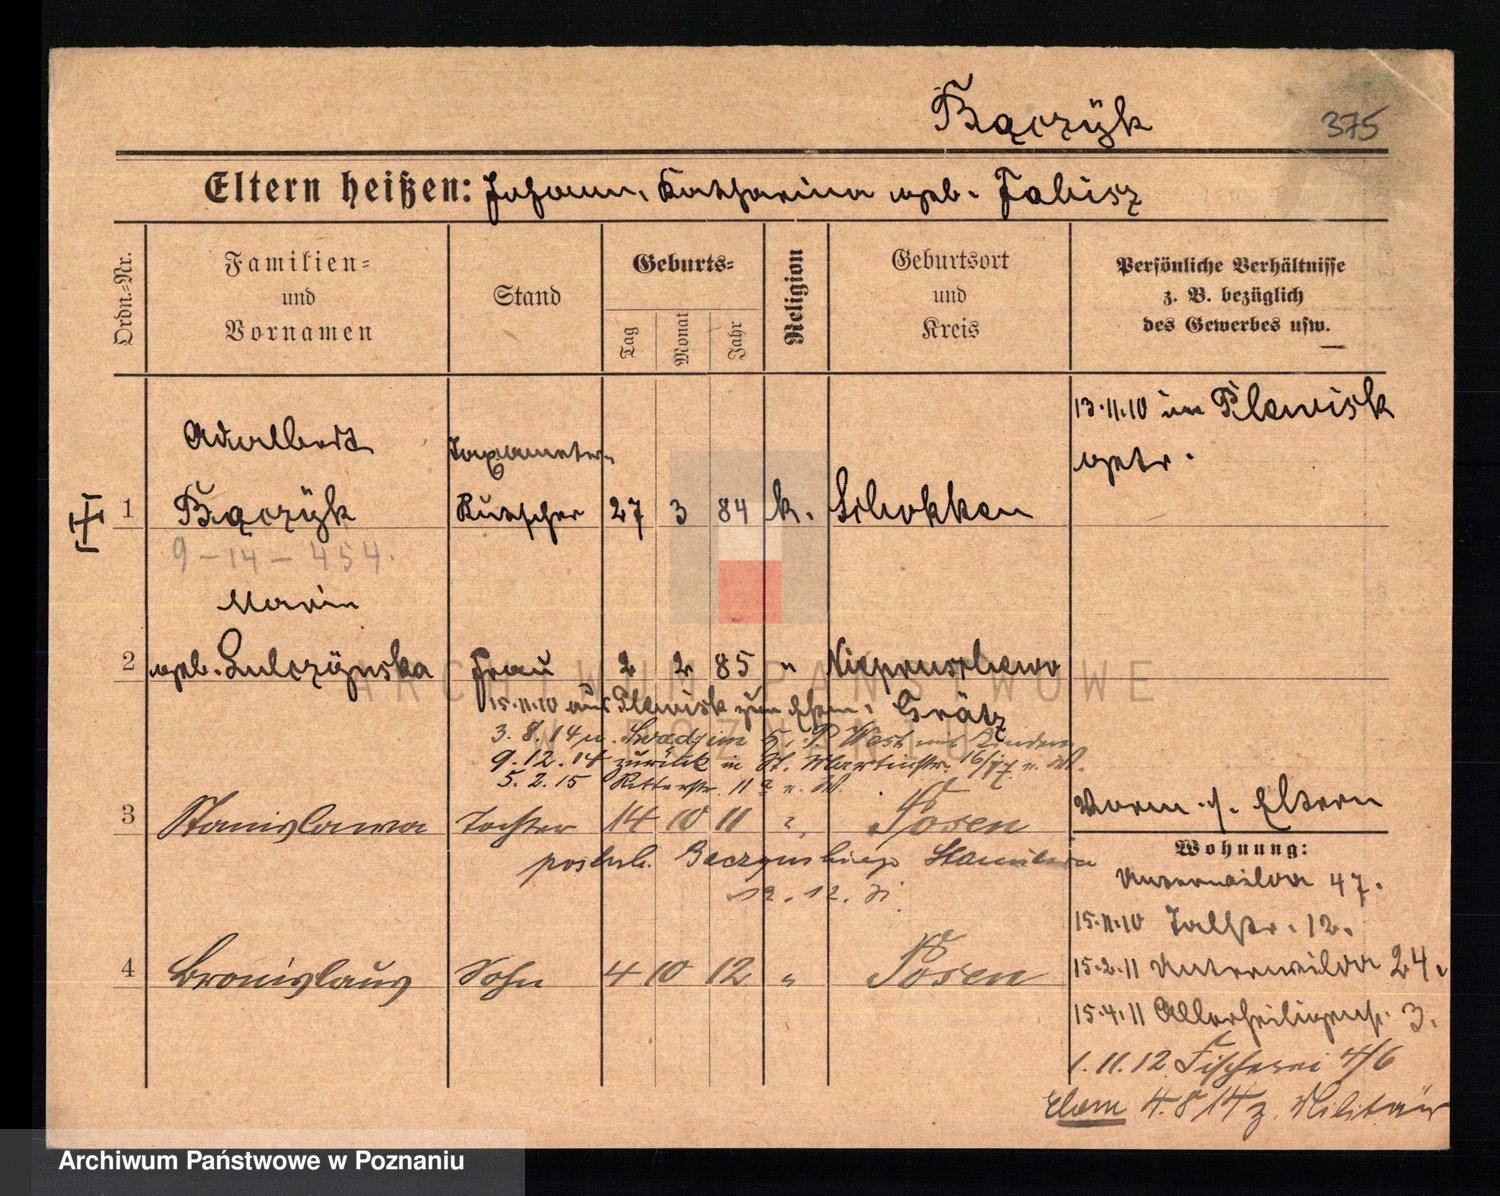 Bączÿk
375
Eltern heißen: Johann, Katharina geb. Fabisz
Ordn.=Nr.
Familien=
und
Vornamen
Stand
Geburts=
Tag
Monat
Jahr
Religion
Geburtsort
und
Kreis
Persönliche Verhältnisse
z. B. bezüglich
des Gewerbes usw.
13.11.10 in Plewisk
getr.
Adalbert
Taxameter-
1 Bączÿk Kutscher 27 3 84 k. Schokken
9-14-454.
Maria
2 geb. Sulczÿnska Frau 2 2 85 " Niepruschewo
15.11.10 aus Plewisk zum Ehem. Grätz
3. 8. 14 n. Kr. P. West mit Kindern
9. 12. 14 zurück in St. Martinstr. 16/17 n. W.
5. 2. 15 Ritterstr. 11 n. W.
3 Stanislawa Tochter 14 10 11 " Posen
Vorm. s. Eltern
Wohnung:
Unterwilda 47.
Stanisława
12. 12.
15.11.10 Talstr. 12.
4 Bronislaus Sohn 4 10 12 " Posen
15.2.11 Unterwilda 24.
15.4.11 Allerheiligenst. 3.
1.11.12 Fischerei 4/6
Ehem 4.8 14 z. Militär
ARCHIWUM PAŃSTWOWE
W POZNANIU
Archiwum Państwowe w Poznaniu